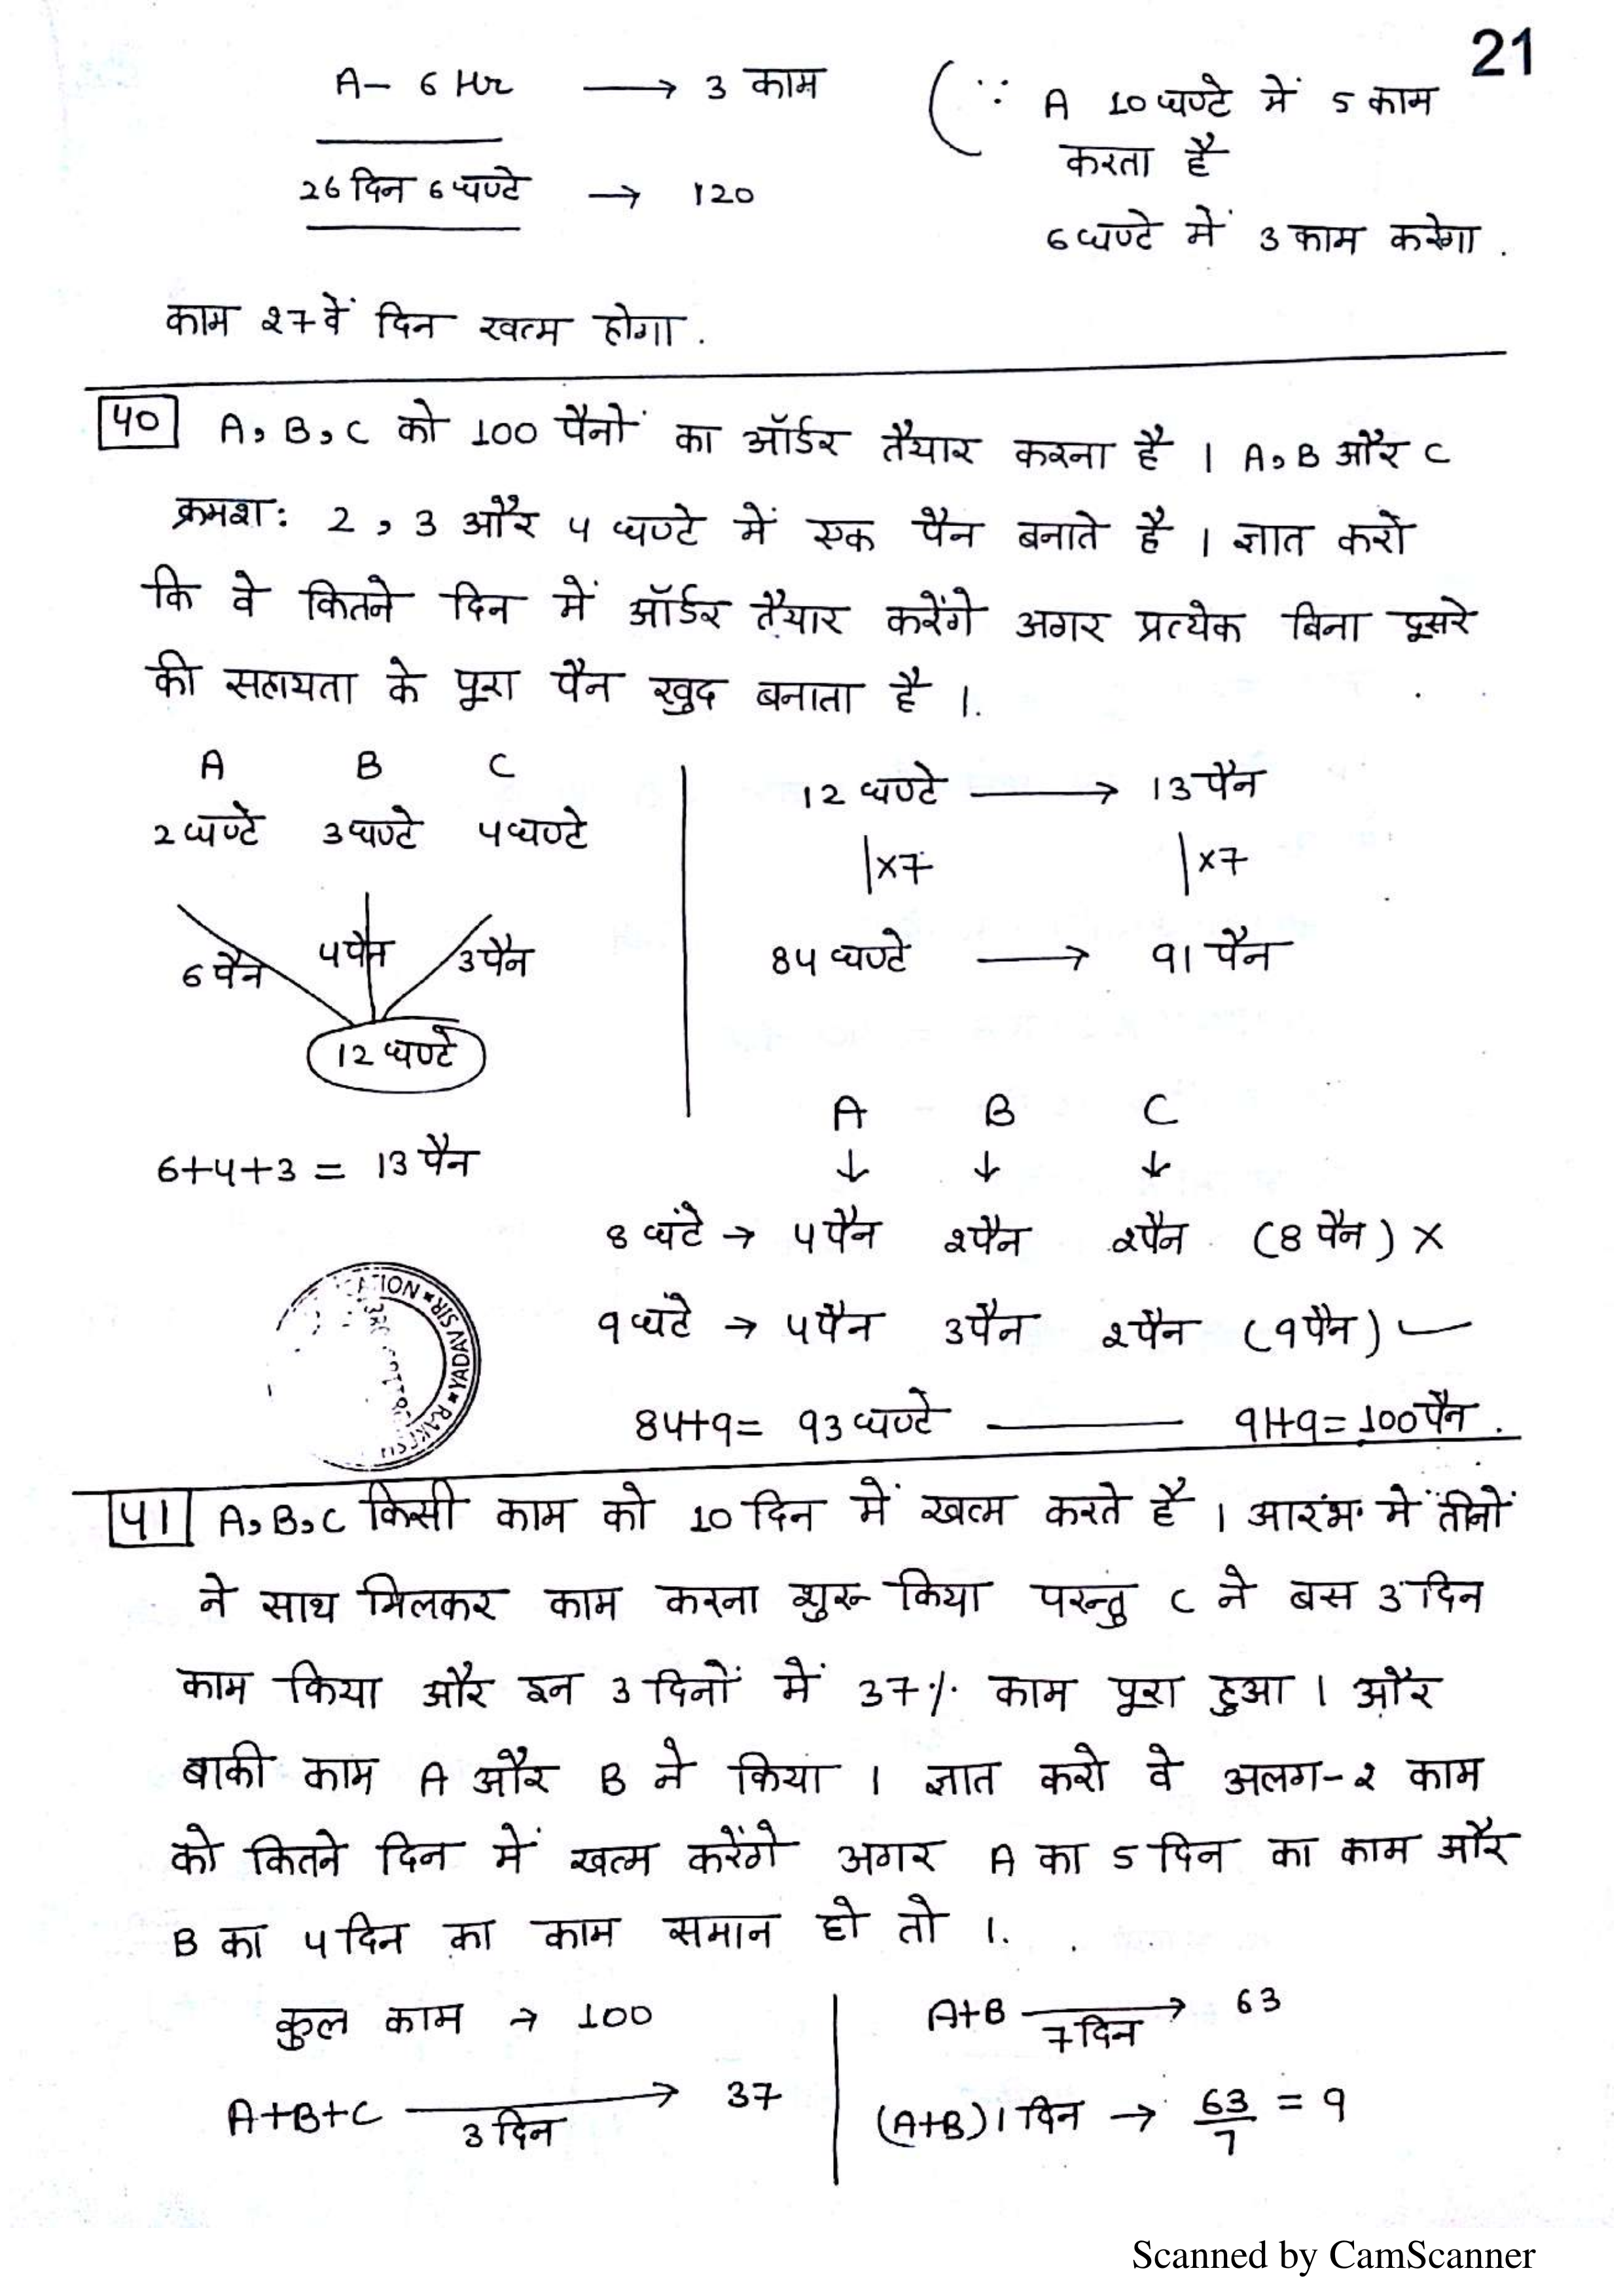 21
A- 6 Hr → 3 काम
( ∵ A 10 घण्टे में 5 काम
करता है
26 दिन 6 घण्टे → 120
6 घण्टे में 3 काम करेगा .
काम 27 वें दिन खत्म होगा .
40 A, B, C को 100 पैनों का ऑर्डर तैयार करना है । A, B और C
क्रमशः 2 , 3 और 4 घण्टे में एक पैन बनाते है । ज्ञात करो
कि वे कितने दिन में ऑर्डर तैयार करेंगे अगर प्रत्येक बिना दूसरे
की सहायता के पूरा पैन खुद बनाता है ।.
A B C
2 घण्टे 3 घण्टे 4 घण्टे
6 पैन 4 पैन 3 पैन
12 घण्टे
6+4+3 = 13 पैन
12 घण्टे → 13 पैन
×7 ×7
84 घण्टे → 91 पैन
A B C
↓ ↓ ↓
8 घंटे → 4 पैन 2 पैन 2 पैन (8 पैन) ×
9 घंटे → 4 पैन 3 पैन 2 पैन (9 पैन)
84+9= 93 घण्टे — 91+9= 100 पैन .
YADAV SIR
41 A, B, C किसी काम को 10 दिन में खत्म करते है । आरंभ में तीनों
ने साथ मिलकर काम करना शुरू किया परन्तु C ने बस 3 दिन
काम किया और इन 3 दिनों में 37% काम पूरा हुआ । और
बाकी काम A और B ने किया । ज्ञात करो वे अलग-2 काम
को कितने दिन में खत्म करेंगे अगर A का 5 दिन का काम और
B का 4 दिन का काम समान हो तो ।.
कुल काम → 100
A+B+C → 37
3 दिन
A+B → 63
7 दिन
(A+B) 1 दिन → 63/7 = 9
Scanned by CamScanner